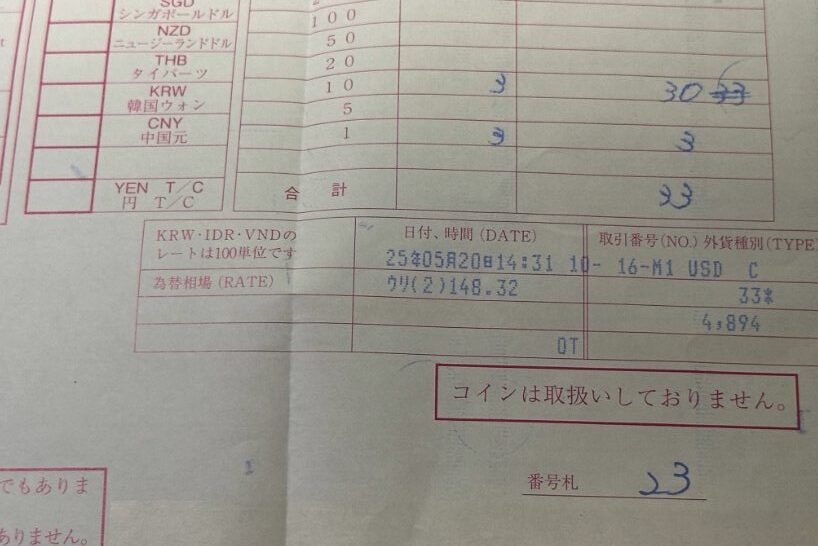 SGD
シンガポールドル
NZD
ニュージーランドドル
THB
タイバーツ
KRW
韓国ウォン
CNY
中国元
YEN T/C
円 T/C
100
50
20
10 3 30 33
5
1 3 3
合計 33
KRW・IDR・VNDの
レートは100単位です
日付、時間(DATE)
取引番号(NO.) 外貨種別(TYPE)
25年05月20日14:31 10- 16-M1 USD C
為替相場(RATE)
ウリ(2)148.32
33*
4,894
OT
コインは取扱いしておりません。
番号札 23
でもありま
ありません。